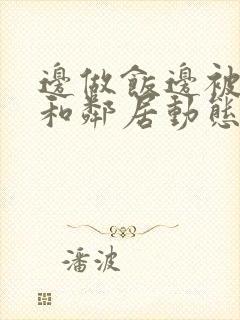 邊做飯邊被
和鄰居動態
潘波